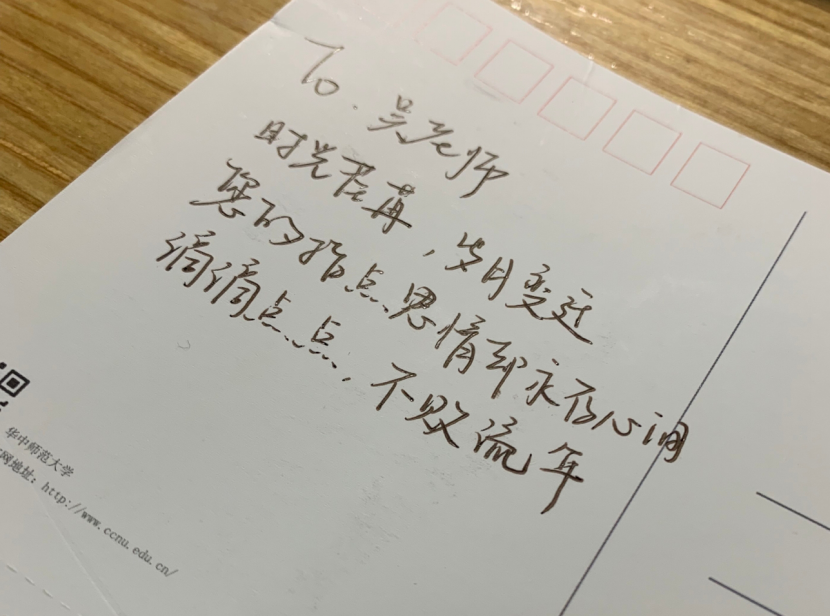 To. 吴老师
时光荏苒，岁月变迁
您的指点恩情却永存心间
滴滴点点，不败流年
华中师范大学
网地址：http://www.ccnu.edu.cn/